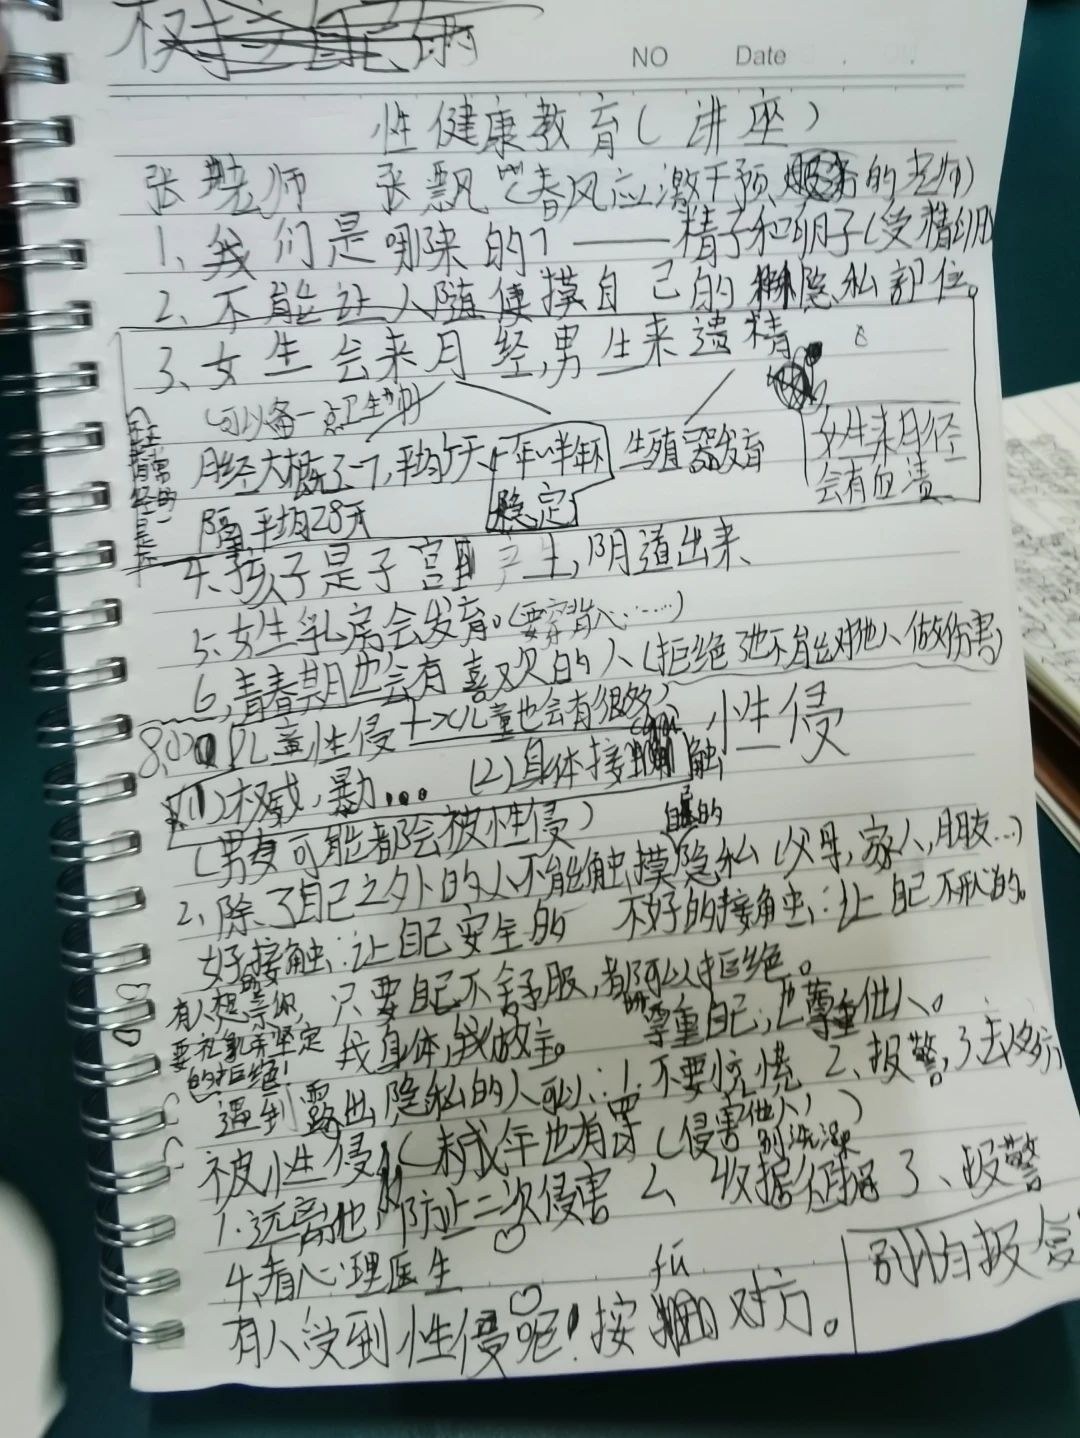 NO Date
性健康教育(讲座)
张老师 张飘(春风应激干预服务的老师)
1、我们是哪来的?——精子和卵子(受精卵)
2、不能让人随便摸自己的隐私部位。
3、女生会来月经,男生来遗精
(可以备一点卫生巾)
月经大概3-7,平均5天,一年~半年不
稳定
生殖器发育
女生来月经
会有血渍
隔平均28天
4、孩子是子宫产生,阴道出来
5、女生乳房会发育。(要穿背心……)
6、青春期也会有喜欢的人(拒绝了也不能对他人做伤害)
儿童性侵 儿童也会有 性侵
(1)权威,暴力... (2)身体接触
(男女可能都会被性侵)
2、除了自己之外的人不能触摸自己的隐私(父母,家人,朋友...)
好的接触:让自己安全的 不好的接触:让自己不开心的。
有人想亲你,
要
坚定
的拒绝!
只要自己不舒服,都可以拒绝。
我身体,我做主。 尊重自己,也尊重他人。
遇到露出隐私的人可以:1.不要惊慌 2、报警,3去
被性侵(未成年也有罪(侵害他人))
别洗澡
1.远离他,防止二次侵害 2、收据证据 3、报警
4、看心理医生
别怕报
有人受到性侵呢!按 fǔ 对方。